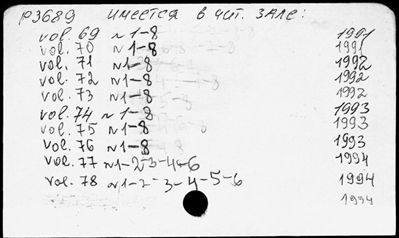 P3689 имеется в чит. зале:
vol. 69 N1-8 1991
vol. 70 N1-8 1991
vol. 71 N1-8 1992
vol. 72 N1-8 1992
vol. 73 N1-8 1992
vol. 74 N1-8 1993
vol. 75 N1-8 1993
vol. 76 N1-8 1993
vol. 77 N1-2-3-4-6 1994
vol. 78 N1-2-3-4-5-6 1994
1994